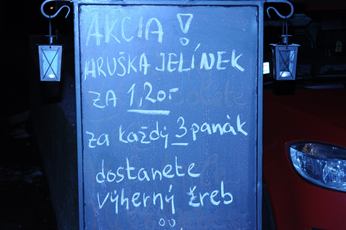 AKCIA !
HRUŠKA JELÍNEK
ZA 1,20.-
za každý 3 panák
dostanete
výherný žreb